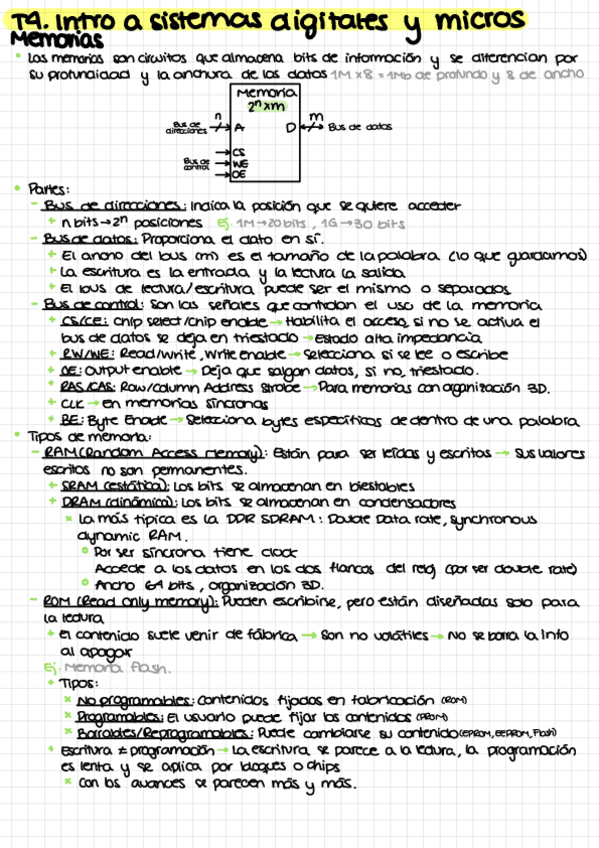 T4. Intro a sistemas digitales y micros
Memorias
• Las memorias son circuitos que almacena bits de información y se diferencian por
su profundidad y la anchura de los datos 1M x 8 = 1Mb de profundo y 8 de ancho
Memoria
2ⁿxm
Bus de
direcciones
n
A
D
m
Bus de datos
Bus de
control
CS
WE
OE
• Partes:
- Bus de direcciones: Indica la posición que se quiere acceder
+ n bits → 2ⁿ posiciones Ej. 1M → 20 bits, 1G → 30 bits
- Bus de datos: Proporciona el dato en sí.
+ El ancho del bus (m) es el tamaño de la palabra (lo que guardamos)
+ La escritura es la entrada y la lectura la salida
+ El bus de lectura/escritura puede ser el mismo o separados
- Bus de control: Son las señales que controlan el uso de la memoria
+ CS/CE: Chip select/chip enable → Habilita el acceso, si no se activa el
bus de datos se deja en triestado → Estado alta impedancia
+ RW/WE: Read/write, write enable → Selecciona si se lee o escribe
+ OE: Output enable → Deja que salgan datos, si no, triestado.
+ RAS/CAS: Row/Column Address Strobe → Para memorias con organización 3D.
+ CLK → en memorias síncronas
+ BE: Byte Enable → Selecciona bytes específicos de dentro de una palabra
• Tipos de memoria:
- RAM (Random Access Memory): Están para ser leídas y escritas → Sus valores
escritos no son permanentes.
+ SRAM (estática): Los bits se almacenan en biestables
+ DRAM (dinámica): Los bits se almacenan en condensadores
× La más típica es la DDR SDRAM: Double Data rate, synchronous
dynamic RAM.
○ Por ser síncrona tiene clock
Accede a los datos en los dos flancos del reloj (por ser double rate)
○ Ancho 64 bits, organización 3D.
- ROM (Read only memory): Pueden escribirse, pero están diseñadas solo para
la lectura
+ El contenido suele venir de fábrica → Son no volátiles → No se borra la info
al apagar
Ej. Memoria flash.
+ Tipos:
× No programables: Contenidos fijados en fabricación (ROM)
× Programables: El usuario puede fijar los contenidos (PROM)
× Borrables/Reprogramables: Puede cambiarse su contenido (EPROM, EEPROM, Flash)
+ Escritura ≠ programación → La escritura se parece a la lectura, la programación
es lenta y se aplica por bloques o chips
× Con los avances se parecen más y más.